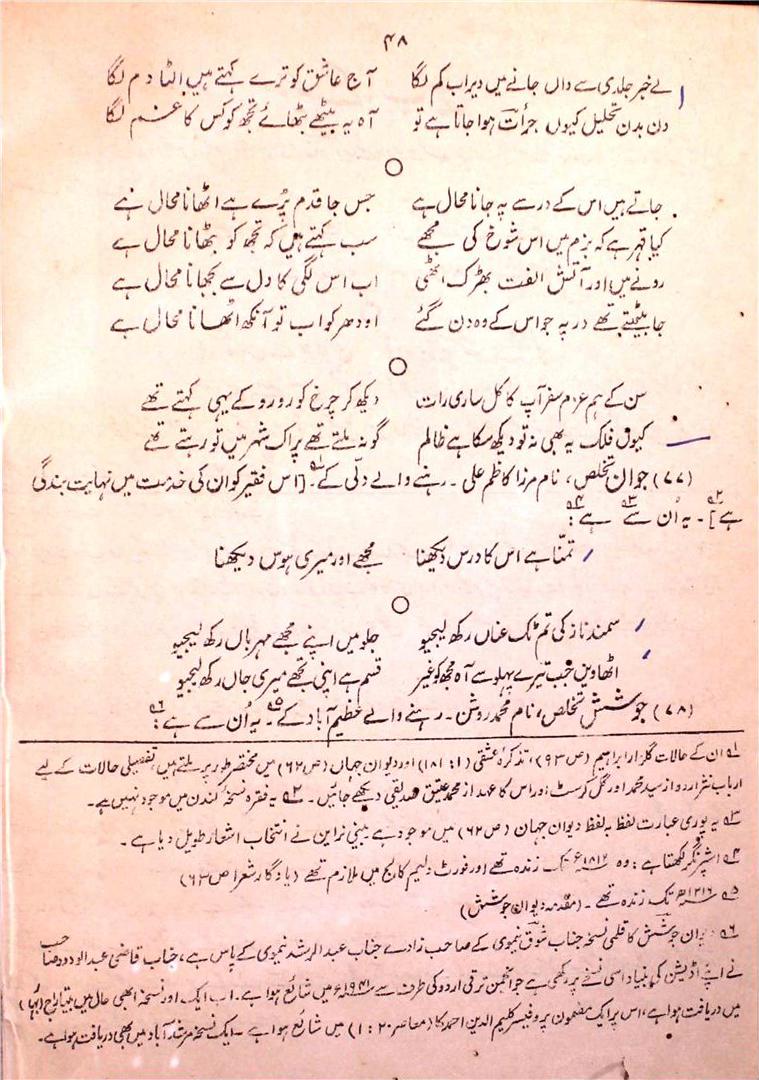 ۴۸
بے خبر جلدی سے واں جانے میں دیر اب کم لگا آج عاشق کو ترے کہتے ہیں الٹا دم لگا
دن بدن تحلیل کیوں جرأت ہوا جاتا ہے تو آہ یہ بیٹھے بٹھائے تجھ کو کس کا غم لگا
جاتے ہیں اس کے در سے پہ جانا محال ہے جس جا قدم پڑے ہے اٹھانا محال ہے
کیا قہر ہے کہ بزم میں اس شوخ کی مجھے سب کہتے ہیں کہ تجھ کو بٹھانا محال ہے
رونے میں اور آتش الفت بھڑک اٹھی اب اس لگی کا دل سے بجھانا محال ہے
جا بیٹھتے تھے در پہ جو اس کے وہ دن گئے اودھر کو اب تو آنکھ اٹھانا محال ہے
سن کے ہم عزم سفر آپ کا کل ساری رات دیکھ کر چرخ کو رو رو کے یہی کہتے تھے
کیوں فلک یہ بھی نہ تو دیکھ سکا ہے ظالم گو نہ ملتے تھے پر اک شہر میں تو رہتے تھے
(۷۷) جوان تخلص، نام مرزا کاظم علی ۔ رہنے والے دلی کے۔۱ [اس فقیر کو ان کی خدمت میں نہایت بندگی
ہے]۲ ۔ یہ اُن سے۳ ہے۴ :
تمنّا ہے اس کا درس دیکھنا مجھے اور میری ہوس دیکھنا
سمند ناز کی تم ٹک عناں رکھ لیجیو جلو میں اپنے مجھے مہرباں رکھ لیجیو
اٹھاویں جب تیرے پہلو سے آہ مجھ کو غیر قسم ہے اپنی تجھے میری جاں رکھ لیجیو
(۷۸) جوشش تخلص، نام محمد روشن ۔ رہنے والے عظیم آباد کے۔۵ یہ اُن سے ہے۶ :
۱ ان کے حالات گلزار ابراہیم (ص ۹۳)، تذکرہ عشقی (۱: ۱۸۱) اور دیوان جہاں (ص ۶۲) میں مختصر طور پر ملتے ہیں، تفصیلی حالات کے لیے
ارباب نثر اردو از سید محمد اور گل کرسٹ اور اس کا عہد از محمد عتیق صدیقی دیکھے جائیں ۔ ۲ یہ فقرہ نسخہ لندن میں موجود نہیں ہے۔
۳ یہ پوری عبارت لفظ بہ لفظ دیوان جہان (ص ۶۲) میں موجود ہے بینی نراین نے انتخاب اشعار طویل دیا ہے ۔
۴ اشپرنگر لکھتا ہے : وہ ۱۸۱۲ء تک زندہ تھے اور فورٹ ولیم کالج میں ملازم تھے (یادگار شعرا ص ۶۳)
۵ ۱۲۱۶ھ تک زندہ تھے ۔ (مقدمہ دیوان جوشش)
۶ دیوان جوشش کا قلمی نسخہ جناب شوق نیموی کے صاحب زادے جناب عبد الرشد نیموی کے پاس ہے ، جناب قاضی عبد الودود صاحب
نے اپنے اڈیشن کی بنیاد اسی نسخے پر رکھی ہے جو انجمن ترقی اردو کی طرف سے ۱۹۴۱ء میں شائع ہوا ہے ۔ اب ایک اور نسخہ ابھی حال میں
میں دریافت ہوا ہے ، اس پر ایک مضمون پروفیسر کلیم الدین احمد کا (معاصر ۲۰ : ۱) میں شائع ہوا ہے ۔ ایک نسخہ مرشد آباد میں بھی دریافت ہوا ہے۔